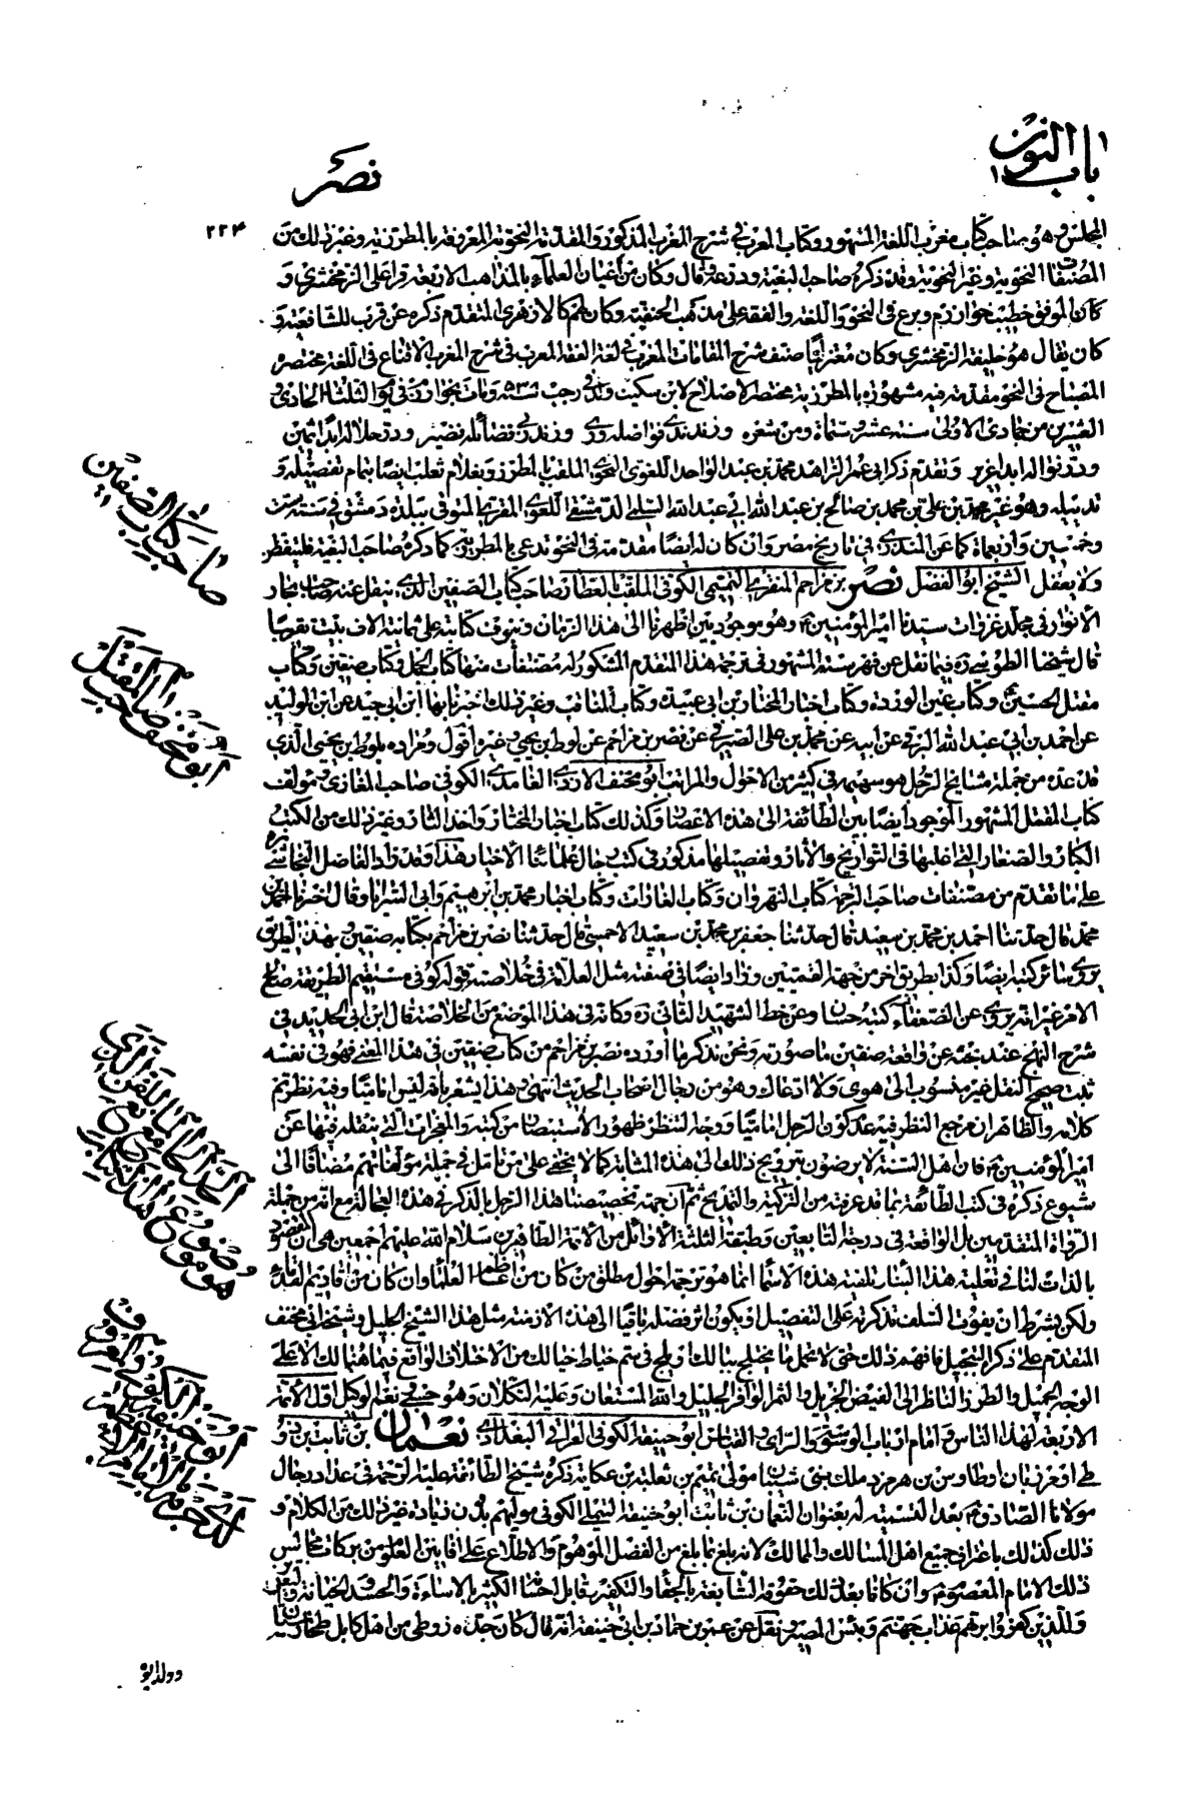 باب النون
نصر
٢٢٤
المجلس وهو صاحب كتاب مغرب اللغة المشهور وكتاب المعرب في شرح المغرب المذكور والمقدمة النحوية المعروفة بالمطرزية وغير ذلك من
المصنفات النحوية وغير النحوية وقد ذكره صاحب البغية قال وكان من اعيان العلماء بالمذاهب الاربعة قرأ على الزمخشري و
كان الموفق خطيب خوارزم وبرع في النحو واللغة والفقه على مذهب الحنفية وكان لهم كالازهري المتقدم ذكره عن قريب للشافعية و
كان يقال هو خليفة الزمخشري وكان معتزليا صنف شرح المقامات المغرب في لغة الفقه المعرب في شرح المغرب الاقناع في اللغة مختصر
المصباح في النحو مقدمة فيه مشهورة بالمطرزية مختصر الاصلاح لابن سكيت ولد في رجب سنة ٥٣٨ ومات بخوارزم في يوم الثلثاء الحادي
العشرين من جمادى الاولى سنة عشر وستمائة ومن شعره وزند ندى فواضله وري وزند ربى فضائله نضير ودر خلاله ابدا ثمين
ودر نواله ابدا غزير وتقدم ذكر ابي عمر الزاهد محمد بن عبد الواحد اللغوي النحوي الملقب بالمطرز وبغلام ثعلب ايضا بتمام تفصيله و
تذييله وهو غير محمد بن علي بن محمد بن صالح بن عبد الله ابي عبد الله السلمي الدمشقي اللغوي المقري المتوفى ببلدة دمشق في سنة ست
وخمسين واربعمأة كما عن المنذري في تاريخ مصر وان كان له ايضا مقدمة في النحو تدعى بالمطرزية كما ذكره صاحب البغية فليتفطن
ولا يغفل الشيخ ابو الفضل نصر بن مزاحم المنقري التميمي الكوفي الملقب بالعطار صاحب كتاب الصفين الذي ينقل عنه صاحب بحار
الانوار في مجلد غزوات سيدنا امير المؤمنين وهو موجود بين اظهرنا الى هذا الزمان وينوف كتابته على ثمانية الاف بيت تقريبا
قال شيخنا الطوسي ره فيما نقل عن فهرسته المشهور في ترجمة هذا المتقدم المشكور له مصنفات منها كتاب الجمل وكتاب صفين وكتاب
مقتل الحسين وكتاب عين الوردة وكتاب اخبار المختار بن ابي عبيدة وكتاب المناقب وغير ذلك اخبرنا بها ابن ابي جيد عن ابن الوليد
عن احمد بن ابي عبد الله البرقي عن ابيه عن محمد بن علي الصيرفي عن نصر بن مزاحم عن لوط بن يحيى وغيره اقول ومراده بلوط بن يحيى الذي
قد عده من جملة مشايخ الرجل هو سهيمه في كثير من الاحوال والمراتب ابو مخنف الازدي الغامدي الكوفي صاحب المغازي ومؤلف
كتاب المقتل المشهور الموجود ايضا بين الطائفة الى هذه الاعصار وكذلك كتاب اخبار المختار واخذ الثار وغير ذلك من الكتب
الكبار والصغار التي اغلبها في التواريخ والاثار وتفصيلها مذكور في كتب رجال علمائنا الاخيار هذا وقد زاد الفاضل النجاشي
على ما تقدم من مصنفات صاحب الترجمة كتاب النهروان وكتاب الغارات وكتاب اخبار محمد بن ابراهيم وابي السرايا وقال اخبرنا احمد بن
محمد قال حدثنا احمد بن محمد بن سعيد قال حدثنا جعفر بن محمد بن سعيد الاحمسي قال حدثنا نصر بن مزاحم بكتابه صفين وبهذا الطريق
يروي سائر كتبه ايضا وكذا بطريق اخر من جهة القميين وزاد ايضا في صفته مثل العلامة في خلاصته قوله كوفي مستقيم الطريقة صالح
الامر غير انه يروي عن الضعفاء كتبه حسان وعن خط الشهيد الثاني ره وكانه في هذا الموضع من الخلاصة قال ابن ابي الحديد في
شرح النهج عند بحثه عن واقعة صفين ما صورته ونحن نذكر ما اورده نصر بن مزاحم من كتاب صفين في هذا المعنى فهو في نفسه
ثبت صحيح النقل غير منسوب الى هوى ولا ادغال وهو من رجال اصحاب الحديث انتهى وهذا يشعر بانه ليس اماميا وفيه نظر تم
كلامه والظاهر ان مرجع النظر فيه عد كون الرجل اماميا ووجه النظر ظهور الاستبصار من كتبه والمفخرات التي ينقله فيها عن
امير المؤمنين فان اهل السنة لا يرضون بترويج ذلك الى هذه المثابة كما لا يخفى على من تامل في جملة مؤلفاتهم مضافا الى
شيوع ذكره في كتب الطائفة بما قد عرفته من التزكية والتمديح ثم ان جهة تخصيصنا هذا الرجل بالذكر في هذه العجالة مع انه من جملة
الرواة المتقدمين بل الواقعة في درجة التابعين وطبقة الثلثة الاوائل من الائمة الطاهرين سلام الله عليهم اجمعين هي ان المقصود
بالذات لنا في تعلية هذا البناء وتلقية هذه الاسماء انما هو ترجمة احوال مطلق من كان من اعاظم العلماء وان كان من اقاديم القدماء
ولكن بشرط ان يفوت السلف تذكرته على التفصيل او يكون اثر فضله باقيا الى هذه الازمنة مثل هذا الشيخ الجليل وشيخه ابي مخنف
المتقدم على ذكر التبجيل فافهم ذلك حتى لا تحمل ما يختلج ببالك او يلج في سم خياط خيالك من الاختلاف الواقع فيما هنالك الا على
الوجه الجميل والطرز الناظر الى الفيض الجزيل والثمر الوافر الجليل والله المستعان وعليه التكلان وهو حسبي ونعم الوكيل اول الائمة
الاربعة لهذا الناس وامام ارباب الوسوسة والراي والقياس ابو حنيفة الكوفي العراقي البغدادي نعمان بن ثابت بن زو
طى او مرزبان او طاوس بن هرمز ملك بني شيبان مولى تيم بن ثعلبة بن عكاية ذكره شيخ الطائفة عليه الرحمة في عداد رجال
مولانا الصادق بعد التسمية له بعنوان النعمان بن ثابت ابو حنيفة التيملي الكوفي مولاهم بدون زيادة غير ذلك من الكلام و
ذلك كذلك باعتراف جميع اهل المسالك والممالك لانه بلغ ما بلغ من الفضل الموهوم والاطلاع على افانين العلوم من بركات مجالس
ذلك الامام المعصوم وان كافا بعد ذلك حقوقه السابغة بالجفاء والتكفير وقابل احسانه الكثير بالاساءة والحسد والخيانة
وللذين كفروا بربهم عذاب جهنم وبئس المصير ونقل عن عمر بن حماد بن ابي حنيفة انه قال كان جده زوطى من اهل كابل
وولد ابو
صاحب كتاب الصفين
ابو مخنف صاحب المقتل
ابو حنيفة الكوفي